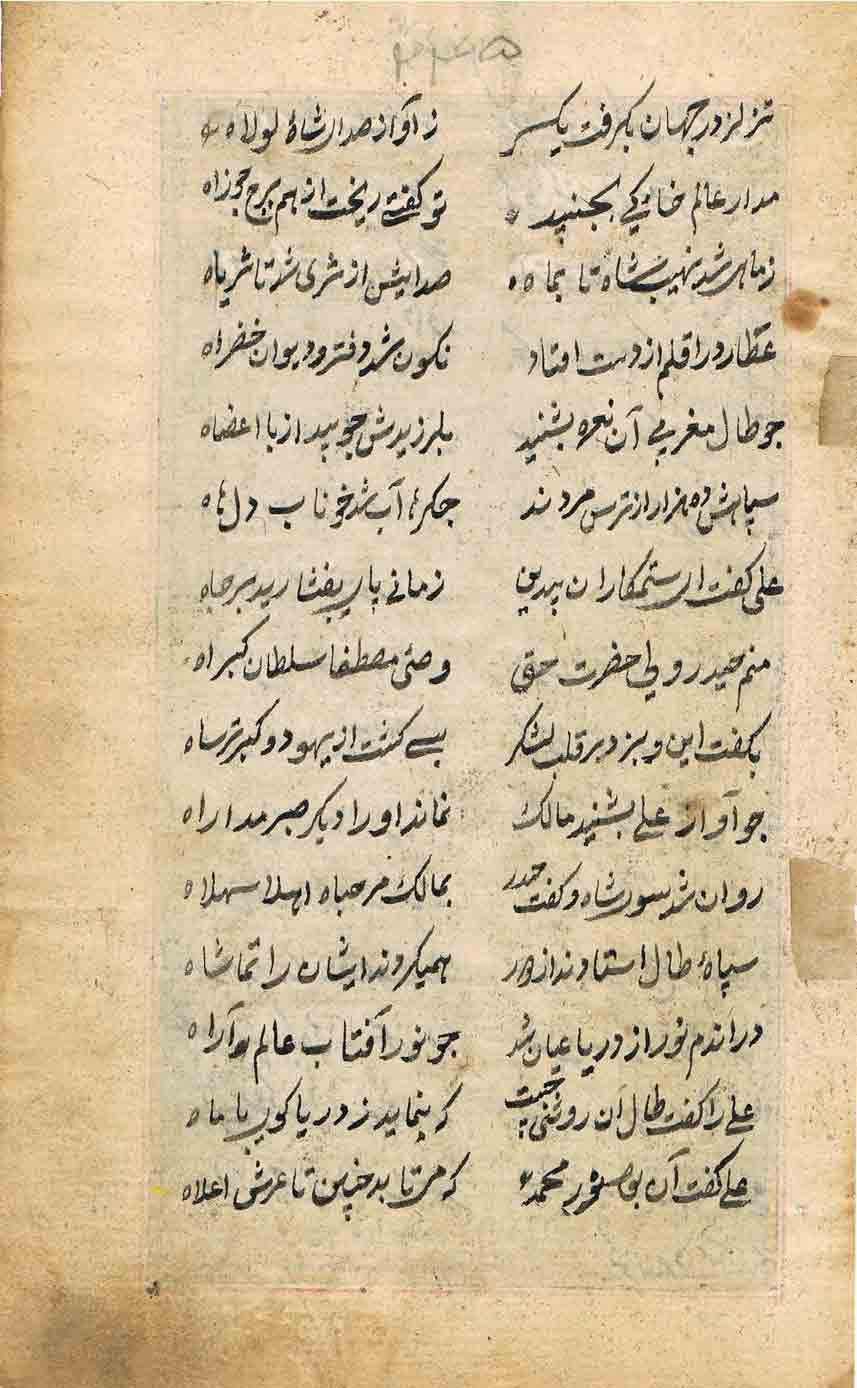 ۲۴۴۵
تزلزل در جهان بکرفت یکسر ز آواز صدار شاۀ لولاه
مدار عالم خاکی بجنپید تو کفتی ریخت از هم برج جوزاه
ز ماهی شد نهیب شاه تا بماه صدایش از ثری شد تا ثریاه
عطارد را قلم از دست افتاد نکون شد دفتر و دیوان خضراه
جو طال مغربی آن نعره بشنید بلرزیدش جو بید از پا اعضاه
سپاهش ده هزار از ترس مردند جکرها آب شد خوناب دلهاه
علی کفت ار ستمکاران پیدین زمانی پای بفشارید برجاه
منم حیدر ولی حضرت حق وصی مصطفا سلطان کبراه
بکفت این و بزد بر قلب لشکر بسی کشت از یهود و کبر ترساه
جو آواز علی بشنید مالک نماند او را دیکر صبر مداراه
روان شد سور شاه و کفت حیدر بمالک مرحباه اهلا سهلاه
سپاۀ طال استادند از دور همیکردند ایشان را تماشاه
در اندم نور از دریا عیان شد جو نور آفتاب عالم آراه
علی را کفت طال آن روشنی چیست که پنماید ز دریا کوی با ماه
علی کفت آن بود نور محمد که مرتابد چنین تا عرش اعلاه